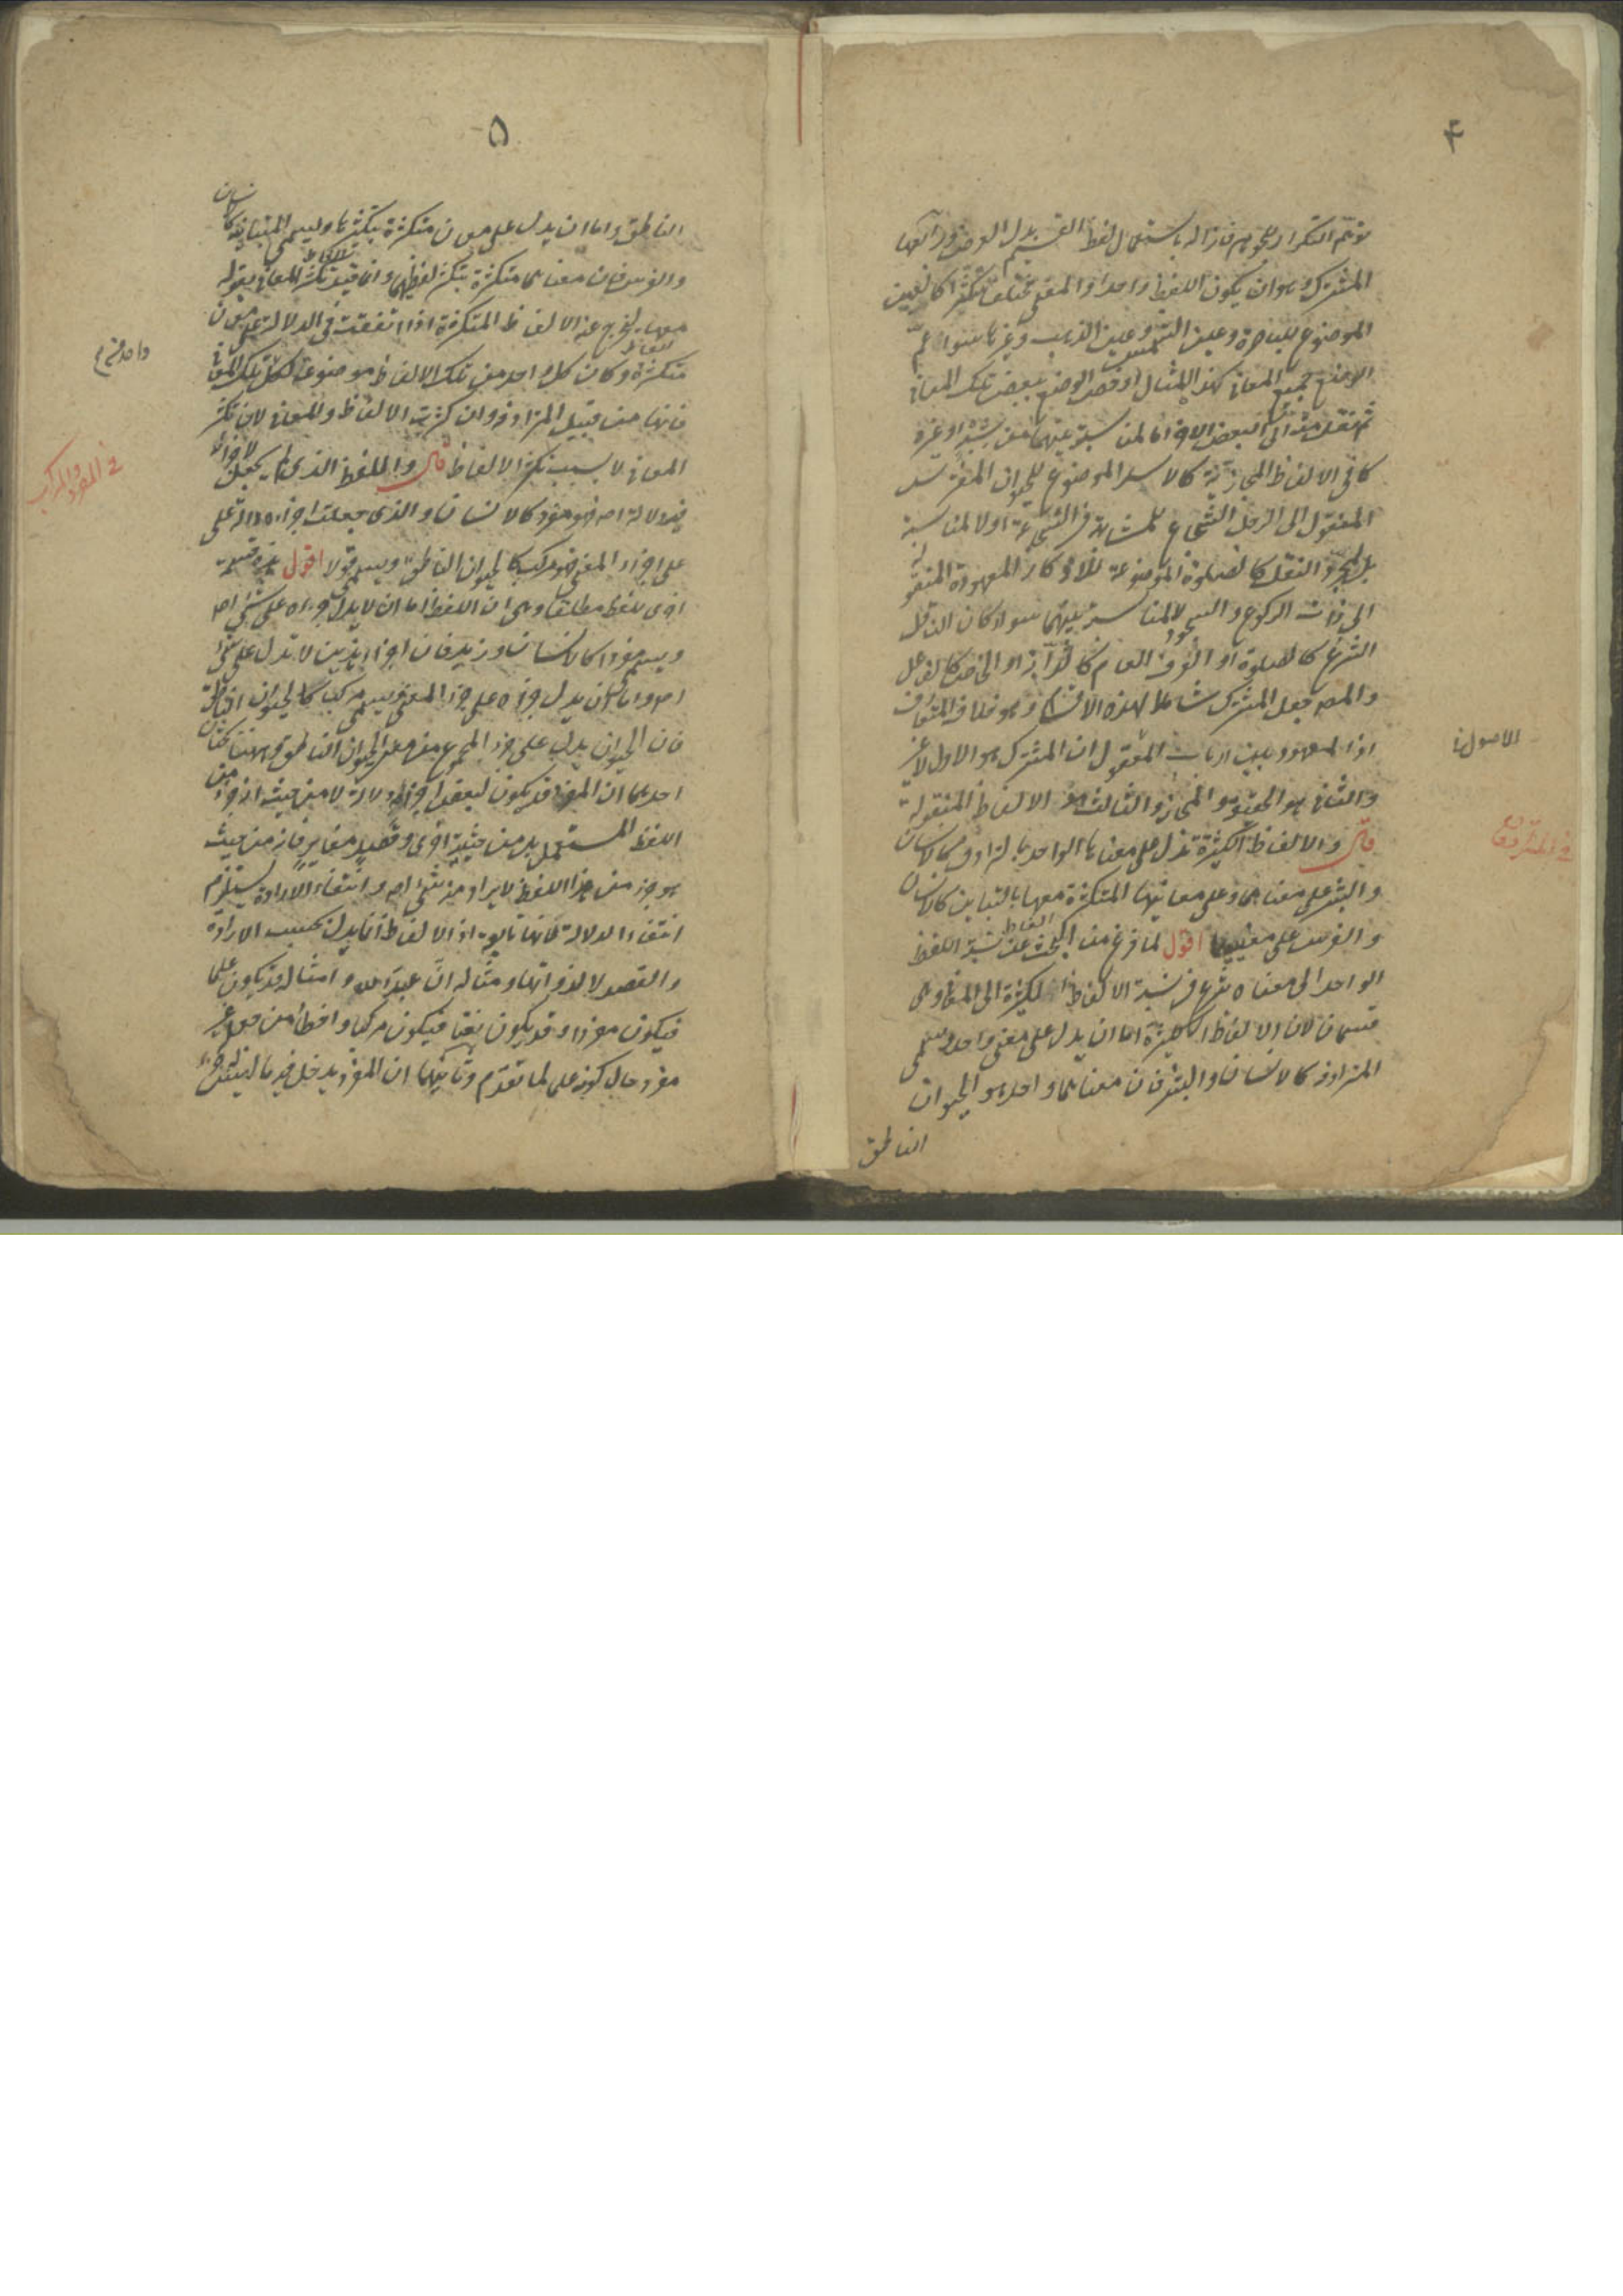 ۴
توهم التكرار للحوم فازاله باستعمال لفظ القسيم بدل العرض
المشترك وهو ان يكون اللفظ واحدا والمعنى مختلفا متكثرا كالعين
الموضوع للباصرة وعين الشمس وعين الذهب وغيرها سواء عم
الوضع لجميع المعانى كهذا المثال او خص الوضع ببعض تلك المعانى
ثم نقل منه الى البعض الاخر اما لمناسبة بينهما من شبه او غيره
كما فى الالفاظ المجازية كالاسد الموضوع للحيوان المفترس
المنقول الى الرجل الشجاع للمشابهة فى الشجاعة او لا لمناسبة
بل لمجرد النقل كالصلوة الموضوعة للاذكار المعهودة المنقولة
الى ذات الركوع والسجود لا لمناسبة بينهما سواء كان الناقل
الشرع كالصلوة او العرف العام كالدابة او الخاص كالفعل
والمصه جعل المشترك شاملا لهذه الاقسام وهو خلاف المتعارف
اذ المعهود بين ارباب المعقول ان المشترك هو الاول لا غير
الاصول
والثانى هو الحقيقة والمجاز والثالث هو الالفاظ المنقولة
قال والالفاظ الكثيرة تدل على معناها الواحد بالترادف كالانسان
فى المترادف
والبشر على معناهما وعلى معانيها المتكثرة معها بالتباين كالانسان
والفرس على معنييهما اقول لما فرغ من البحث عن نسبة اللفظ
الواحد الى معناه شرع فى نسبة الالفاظ الكثيرة الى المعنى وهى
قسمان لان الالفاظ الكثيرة اما ان يدل على معنى واحد ويسمى
المترادفة كالانسان والبشر فان معناهما واحد هو الحيوان
الناطق
۵
الناطق واما ان يدل على معان متكثرة بتكثرها ويسمى المتباينة كالانسان
والفرس فان معناهما متكثرة بتكثر لفظيهما وانما قيد تكثر المعانى بقوله
معها ليخرج عنه الالفاظ المتكثرة اذا اتفقت فى الدلالة على معان
متكثرة وكان كل واحد من تلك الالفاظ موضوعة لكل تلك المعانى
واحد
فانها من قبيل المترادفة وان كثرت الالفاظ والمعانى لان تكثر
المعانى لا بسبب تكثر الالفاظ قال واللفظ الذى لم يجعل لاجزائه
فى المفرد والمركب
فيه دلالة اصلا فهو مفرد كالانسان والذى جعلت اجزاءه دالة على
على اجزاء المعنى فهو مركب كالحيوان الناطق ويسمى قولا اقول هذه قسمة
اخرى للفظ مطلقا وهى ان اللفظ اما ان لا يدل جزءه على شىء اصلا
ويسمى مفردا كالانسان وزيد فان اجزاء هذين لا تدل على شىء
اصلا واما ان يدل جزءه على جزء المعنى ويسمى مركبا كالحيوان الناطق
فان الحيوان يدل على جزء المجموع من معنى الحيوان الناطق وههنا بحثان
احدهما ان المفرد قد يكون لبعض اجزائه دلالة لا من حيث انه جزء من
اللفظ المستعمل بل من حيثية اخرى وقصد مغاير فانه من حيث
هو جزء من هذا اللفظ لا يراد منه شىء اصلا وانتفاء الارادة يستلزم
انتفاء الدلالة لانها تابعة اذ الالفاظ انما يدل بحسب الارادة
والقصد لا لذواتها ومثاله ان عبد الله وامثاله قد يكون علما
فيكون مفردا وقد يكون نعتا فيكون مركبا واخطأ من جعله غير
مفرد حال كونه علما لما تقدم وثانيهما ان المفرد يدخل فيه ما ليس له جزء